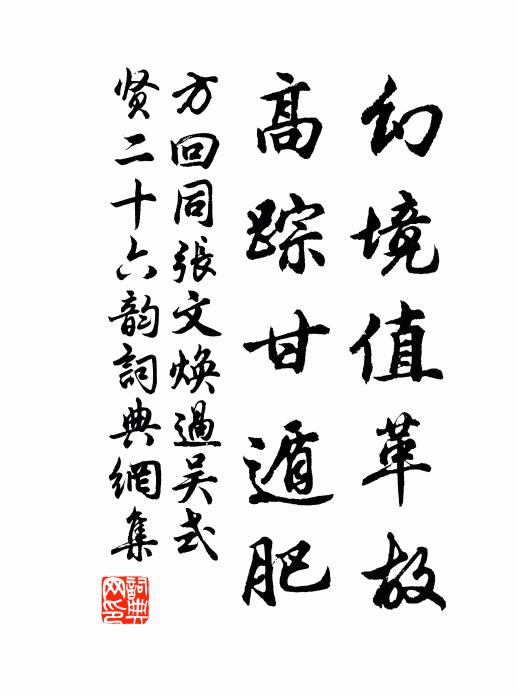 幻境值革故
高踪甘遁肥
方回同張文焕過吴式
贤二十六韵詞典網集
詞典網印